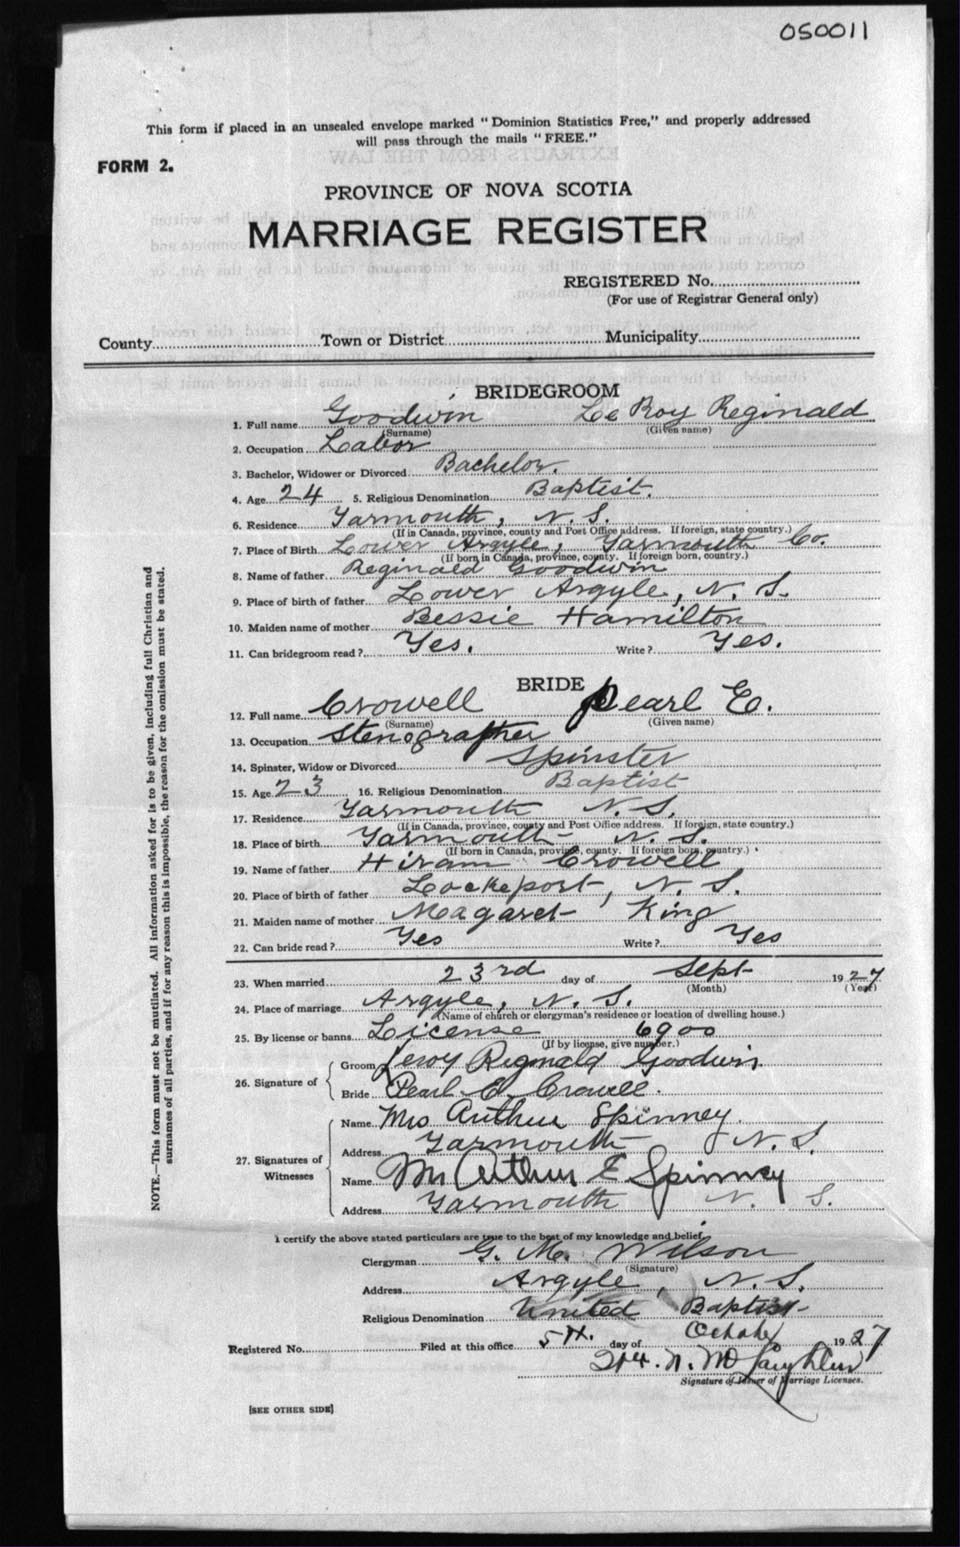 050011
This form if placed in an unsealed envelope marked "Dominion Statistics Free," and properly addressed
will pass through the mails "FREE."
FORM 2.
PROVINCE OF NOVA SCOTIA
MARRIAGE REGISTER
REGISTERED No.
(For use of Registrar General only)
County Town or District Municipality
BRIDEGROOM
1. Full name Goodwin Le Roy Reginald
(Surname) (Given name)
2. Occupation Labor
3. Bachelor, Widower or Divorced Bachelor.
4. Age 24 5. Religious Denomination Baptist.
6. Residence Yarmouth, N. S.
(If in Canada, province, county and Post Office address. If foreign, state country.)
7. Place of Birth Lower Argyle, Yarmouth Co.
(If born in Canada, province, county. If foreign born, country.)
8. Name of father Reginald Goodwin
9. Place of birth of father Lower Argyle, N. S.
10. Maiden name of mother Bessie Hamilton
11. Can bridegroom read? Yes. Write? Yes.
BRIDE
12. Full name Crowell Pearl E.
(Surname) (Given name)
13. Occupation Stenographer
14. Spinster, Widow or Divorced Spinster
15. Age 23 16. Religious Denomination Baptist
17. Residence Yarmouth N. S.
(If in Canada, province, county and Post Office address. If foreign, state country.)
18. Place of birth Yarmouth N. S.
(If born in Canada, province, county. If foreign born, country.)
19. Name of father Hiram Crowell
20. Place of birth of father Lockeport, N. S.
21. Maiden name of mother Magaret King
22. Can bride read? Yes Write? Yes
23. When married 23rd day of Sept 1927
(Month) (Year)
24. Place of marriage Argyle, N. S.
(Name of church or clergyman's residence or location of dwelling house.)
25. By license or banns License 6900
(If by license, give number.)
26. Signature of
Groom Leroy Reginald Goodwin
Bride Pearl E. Crowell.
27. Signatures of Witnesses
Name Mrs Arthur Spinney
Address Yarmouth N. S.
Name Mr Arthur E Spinney
Address Yarmouth N. S.
I certify the above stated particulars are true to the best of my knowledge and belief
Clergyman G. M. Wilson
(Signature)
Address Argyle, N. S.
Religious Denomination United Baptist
Registered No. Filed at this office 5th. day of October 1927
N. McLaughlin
Signature of Issuer of Marriage Licenses.
[SEE OTHER SIDE]
NOTE.—This form must not be mutilated. All information asked for is to be given, including full Christian and
surnames of all parties, and if for any reason this is impossible, the reason for the omission must be stated.